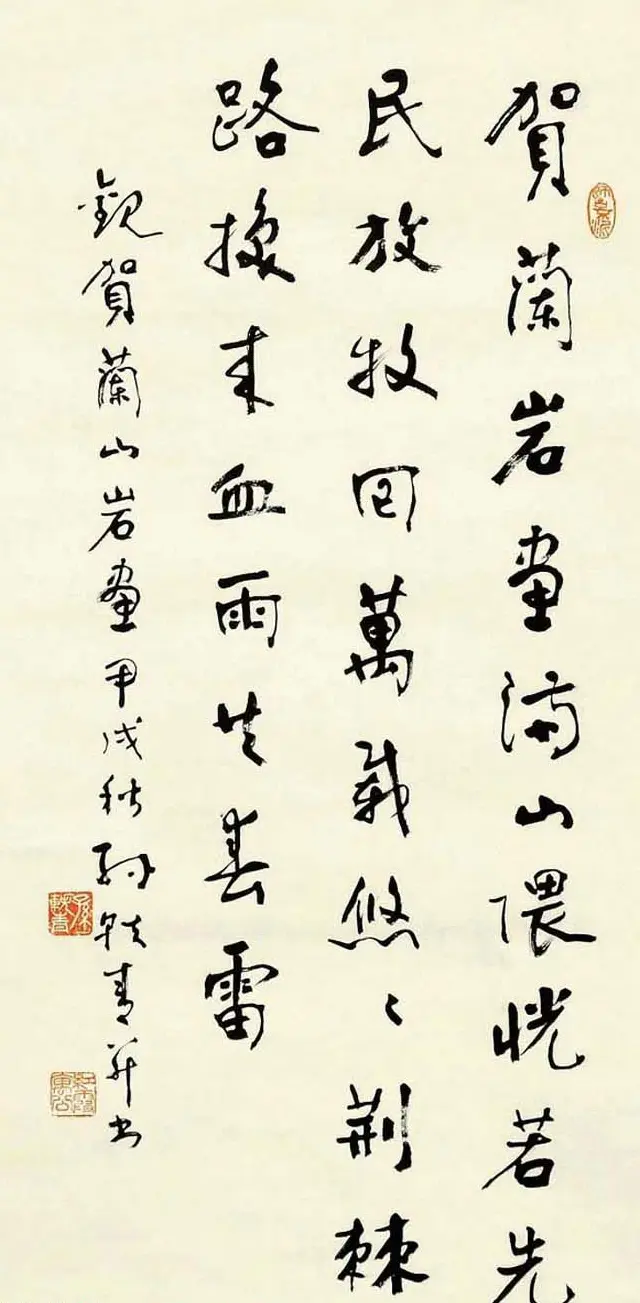 賀蘭岩畫滿山隈恍若先
民放牧回萬載悠〻荊棘
路換來血雨共春雷
觀賀蘭山岩畫甲戌秋孫軼青并書
孫軼青